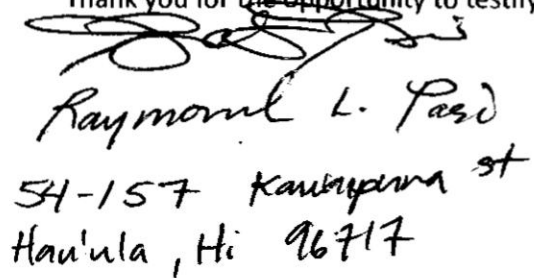 Thank you for the opportunity to testify
Raymond L.
54-157 st
Hau'ula, Hi 96717